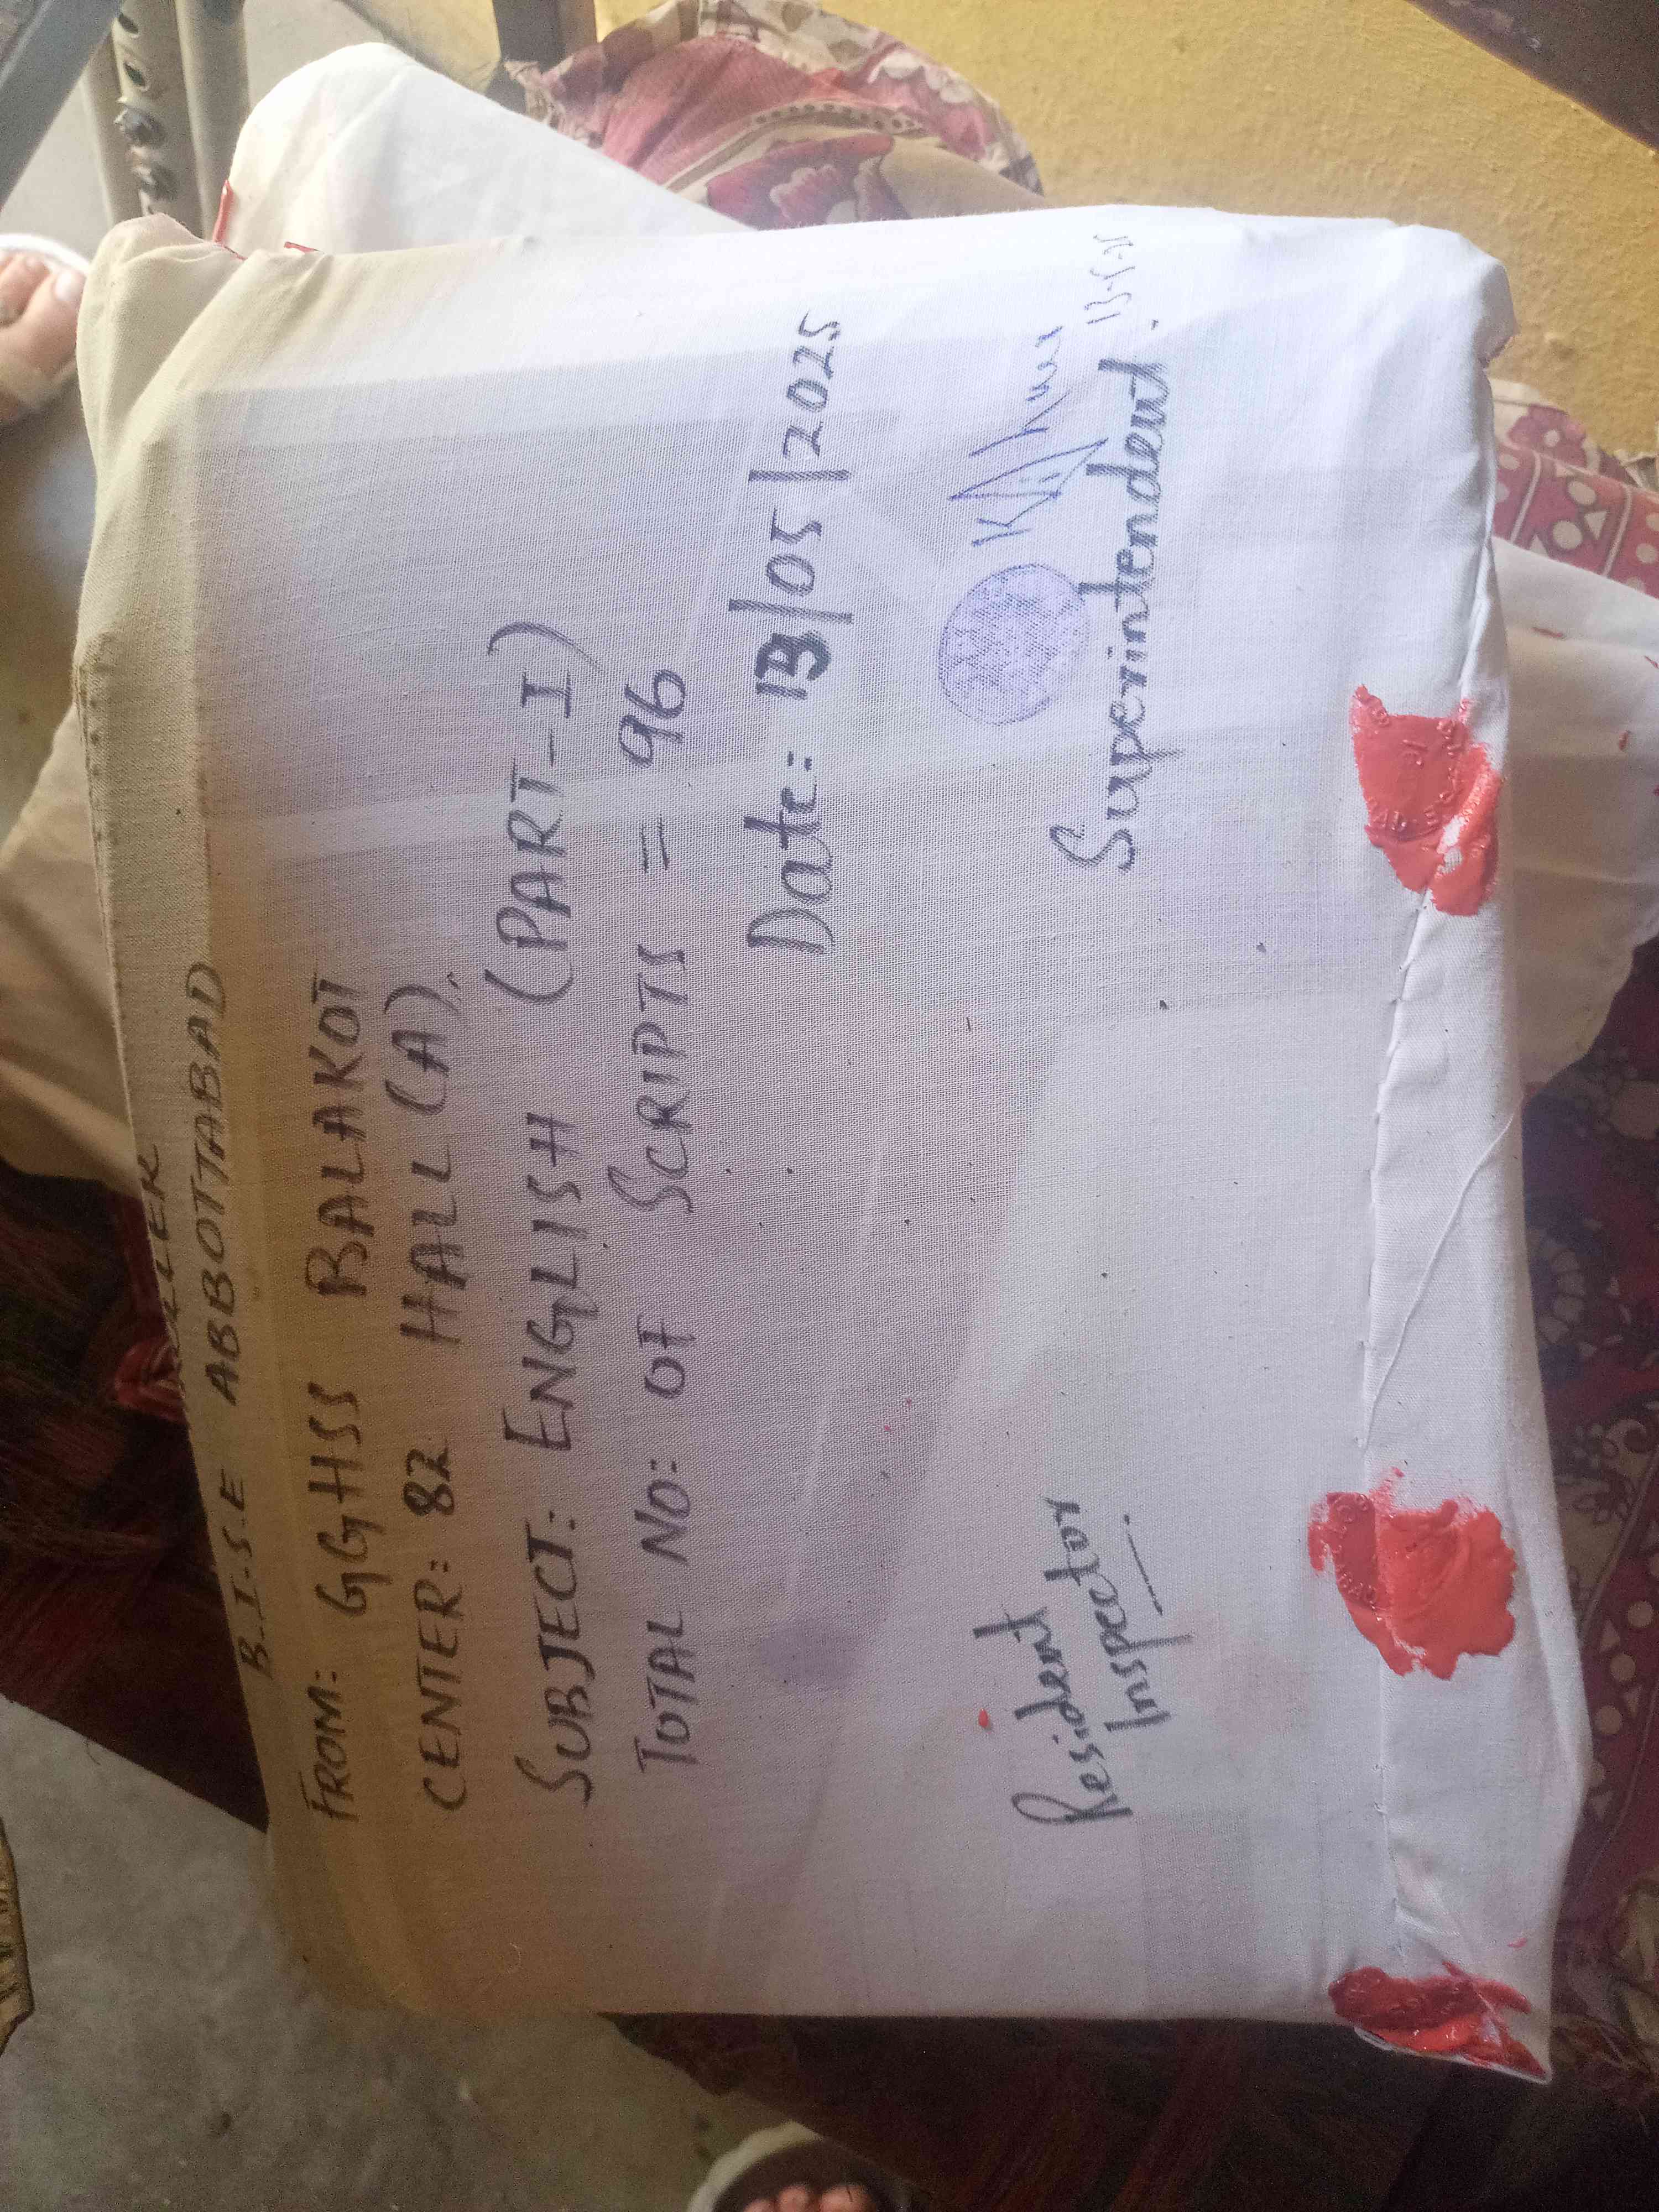 B.I.S.E ABBOTTABAD
FROM: GGHSS BALAKOT
CENTER: 82 HALL (A).
SUBJECT: ENGLISH (PART-I)
TOTAL NO: OF SCRIPTS = 96
Date: 13/05/2025
Resident
Inspector
13-5-25
Superintendent.